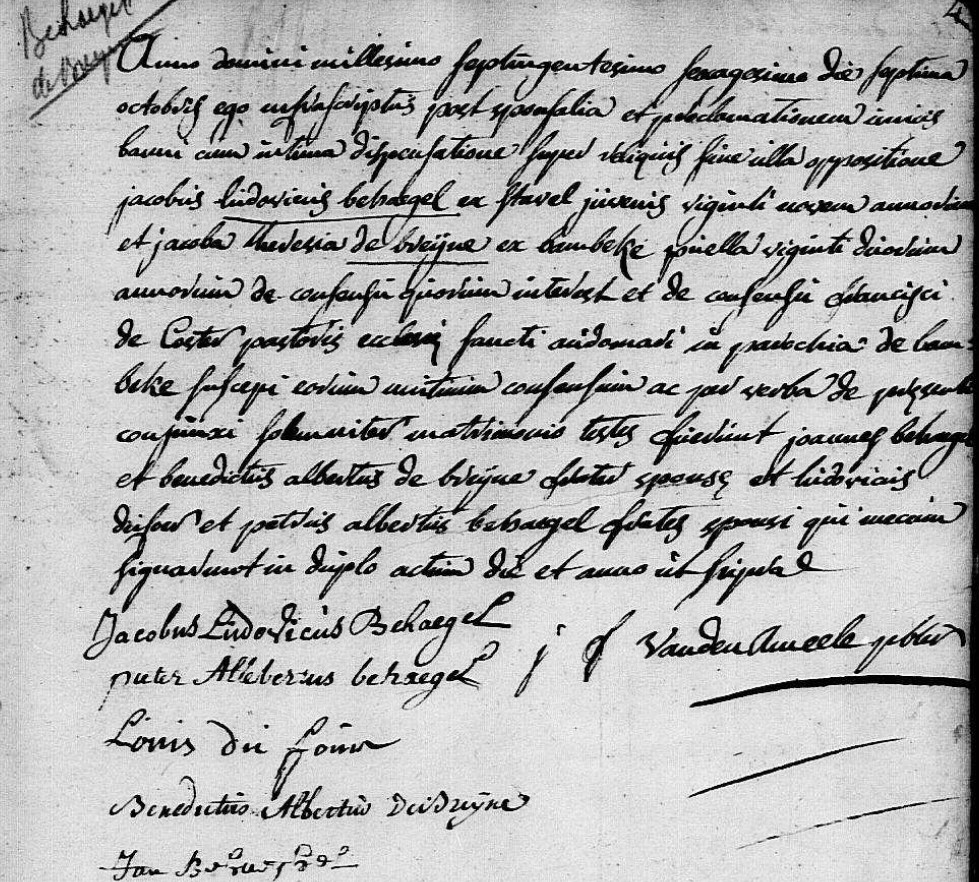 Behaegel
de
4
Anno domini millesimo septingentesimo sexagesimo die septima
octobris ego infrascriptus post sponsalia et proclamationem unius
banni cum dispensatione super reliquis sine ulla oppositione
jacobus ludovicus behaegel ex stavel juvenis viginti novem annorum
et jacoba theresia de breijne ex bambeke puella viginti duorum
annorum de consensu quorum interest et de consensu francisci
de Coster pastoris ecclesię sancti audomari in parochia de bam-
beke suscepi eorum mutuum consensum ac per verba de pręsenti
conjunxi solemniter matrimonio testes fuerunt joannes behaegel
et benedictus albertus de breijne frater sponsę et ludovicus
dufour et petrus albertus behaegel frater sponsi qui mecum
signarunt in duplo actum die et anno ut supra
Jacobus Ludovicus Behaegel
j f Vanden Ameele pbter
puter Alleberus behaegel
Louis du four
Benedictus Albertus De Breijne
Jan